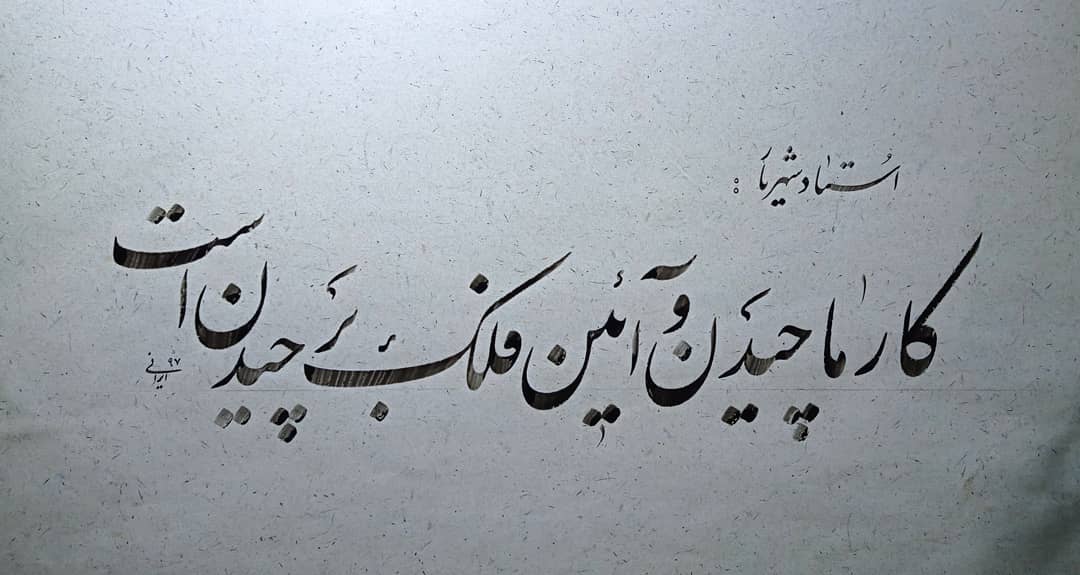 استاد شهریار :
کار ما چیدن و آئین فلک بر چیدن است
ایرانی ۹۷